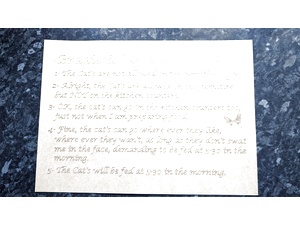 1- The Cat's are not allowed
2- Alright, the cat's are allowed
but NOT on the kitchen counters
3- OK, the cat's can go on the kitchen counters too,
just not when I am preparing food.
4- Fine, the cat's can go where ever they like,
where ever they want, as long as they don't swat
me in the face, demanding to be fed at 5:30 in the
morning.
5- The Cat's will be fed at 5:30 in the morning.